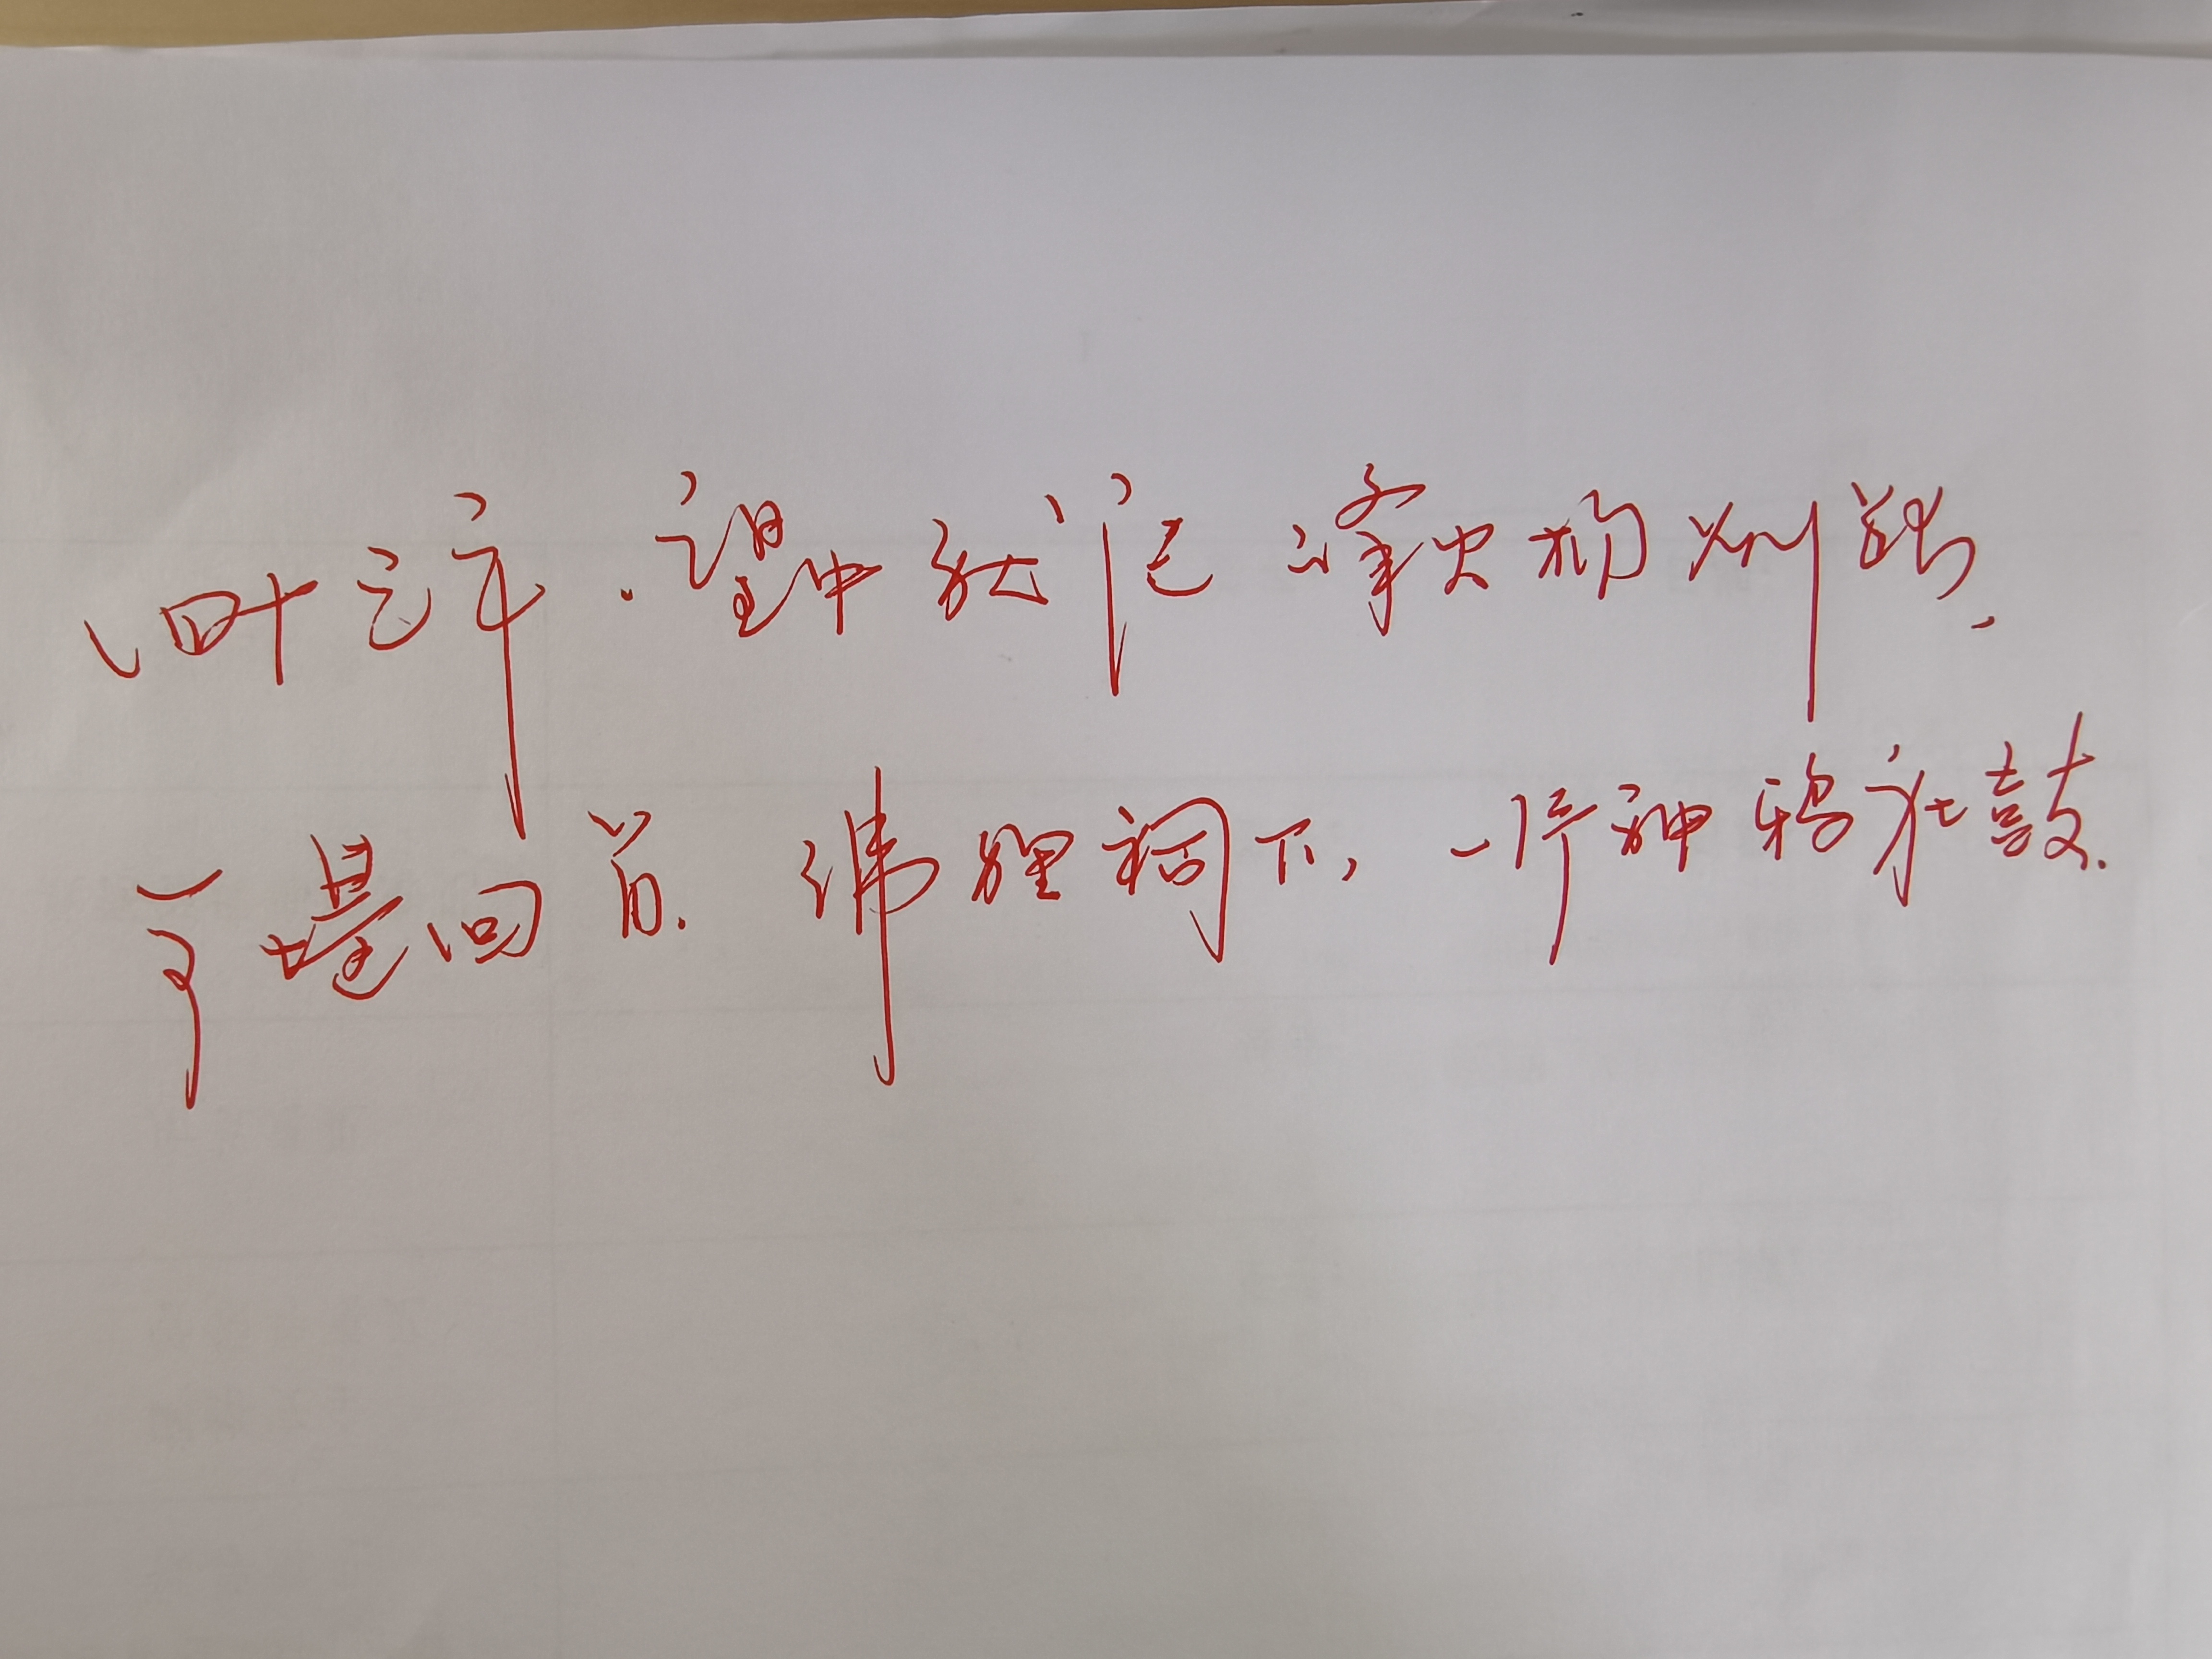 四十三年,望中犹记,烽火扬州路.
可堪回首.佛狸祠下,一片神鸦社鼓.